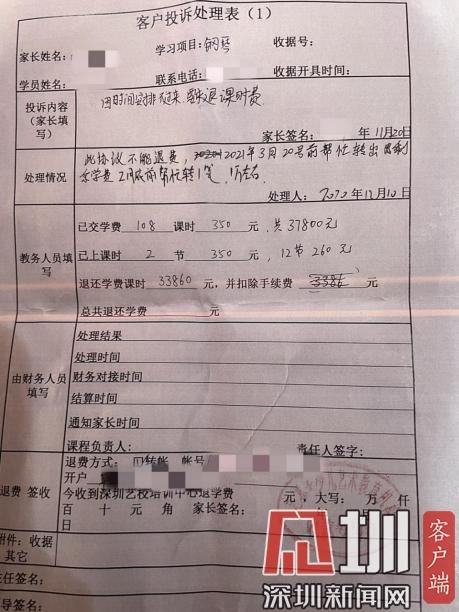 客户投诉处理表（1）
家长姓名： 学习项目：钢琴 收据号：
学员姓名： 联系电话： 收据开具时间：
投诉内容（家长填写） 因时间安排不过来，要求退课时费
家长签名： 年11月20日
处理情况 此协议不能退费，2021年3月20号前帮忙转出
学费2月底前帮忙转1笔，1万左右
处理人： 2020年12月10日
教务人员填写
已交学费 108 课时 350 元，共37800元
已上课时 2 节 350 元，12节 260元
退还学费课时 33860 元，并扣除手续费 3386 元
总共退还学费 元
由财务人员填写
处理结果
处理时间
财务对接时间
结算时间
通知家长时间
课程负责人： 责任人签字：
退费 签收
退费方式： 帐号
开户
今收到深圳艺校培训中心退学费 元，大写： 万 仟
百 十 元 角 家长签名： 年
日
附件：收据
其它
主任签名：
导签名：
深圳新闻网
客户端